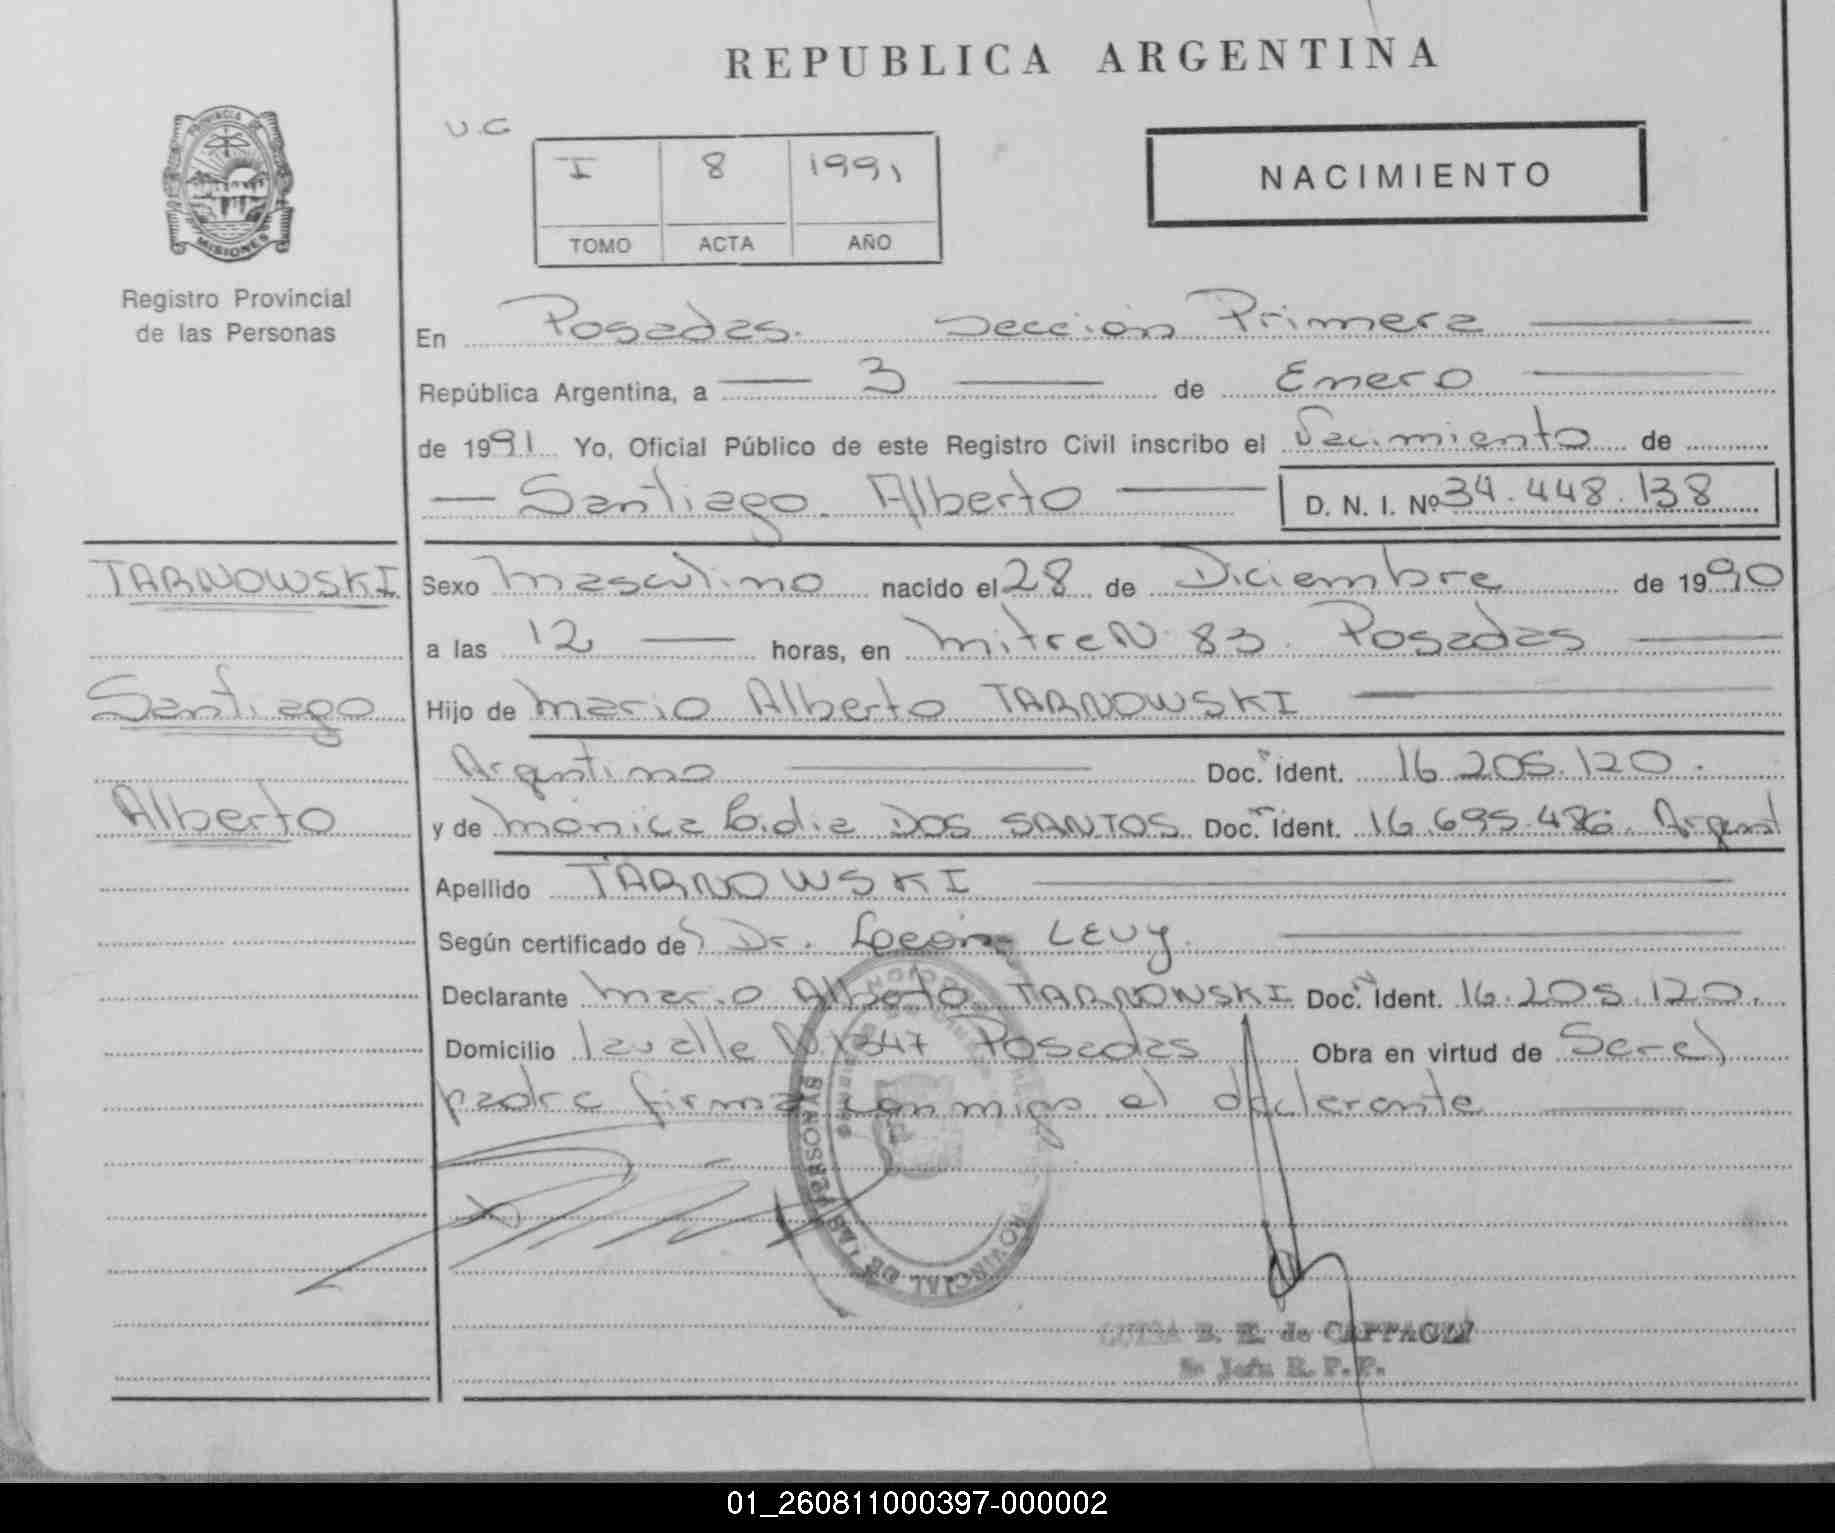 REPUBLICA ARGENTINA
PROVINCIA DE
MISIONES
Registro Provincial
de las Personas
U.C
I 8 1991
TOMO ACTA AÑO
NACIMIENTO
En Posadas. Seccion Primera
República Argentina, a 3 de Enero
de 1991 Yo, Oficial Público de este Registro Civil inscribo el Nacimiento de
Santiago Alberto D. N. I. Nº 34.448.138
TARNOWSKI
Santiago
Alberto
Sexo masculino nacido el 28 de Diciembre de 1990
a las 12 horas, en Mitre N 83. Posadas
Hijo de Mario Alberto TARNOWSKI
Argentino Doc. Ident. 16.205.120.
y de Mónica Lidia DOS SANTOS Doc. Ident. 16.695.486. Argent
Apellido TARNOWSKI
Según certificado de Dr. LEVY.
Declarante Mario Alberto TARNOWSKI Doc. Ident. 16.205.120.
Domicilio Lavalle N 1347 Posadas Obra en virtud de Ser el
padre firma conmigo el declarante
PROVINCIAL DE LAS PERSONAS
B. de
R. P. P.
01_260811000397-000002